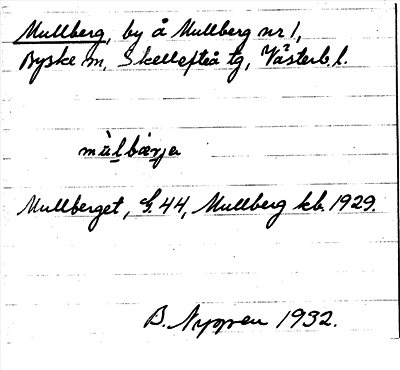 Mullberg, by å Mullberg nr 1,
Byske sn, Skellefteå tg, Västerb. l.
Mullberget, G. 44, Mullberg kb. 1929.
B. Nyman 1932.